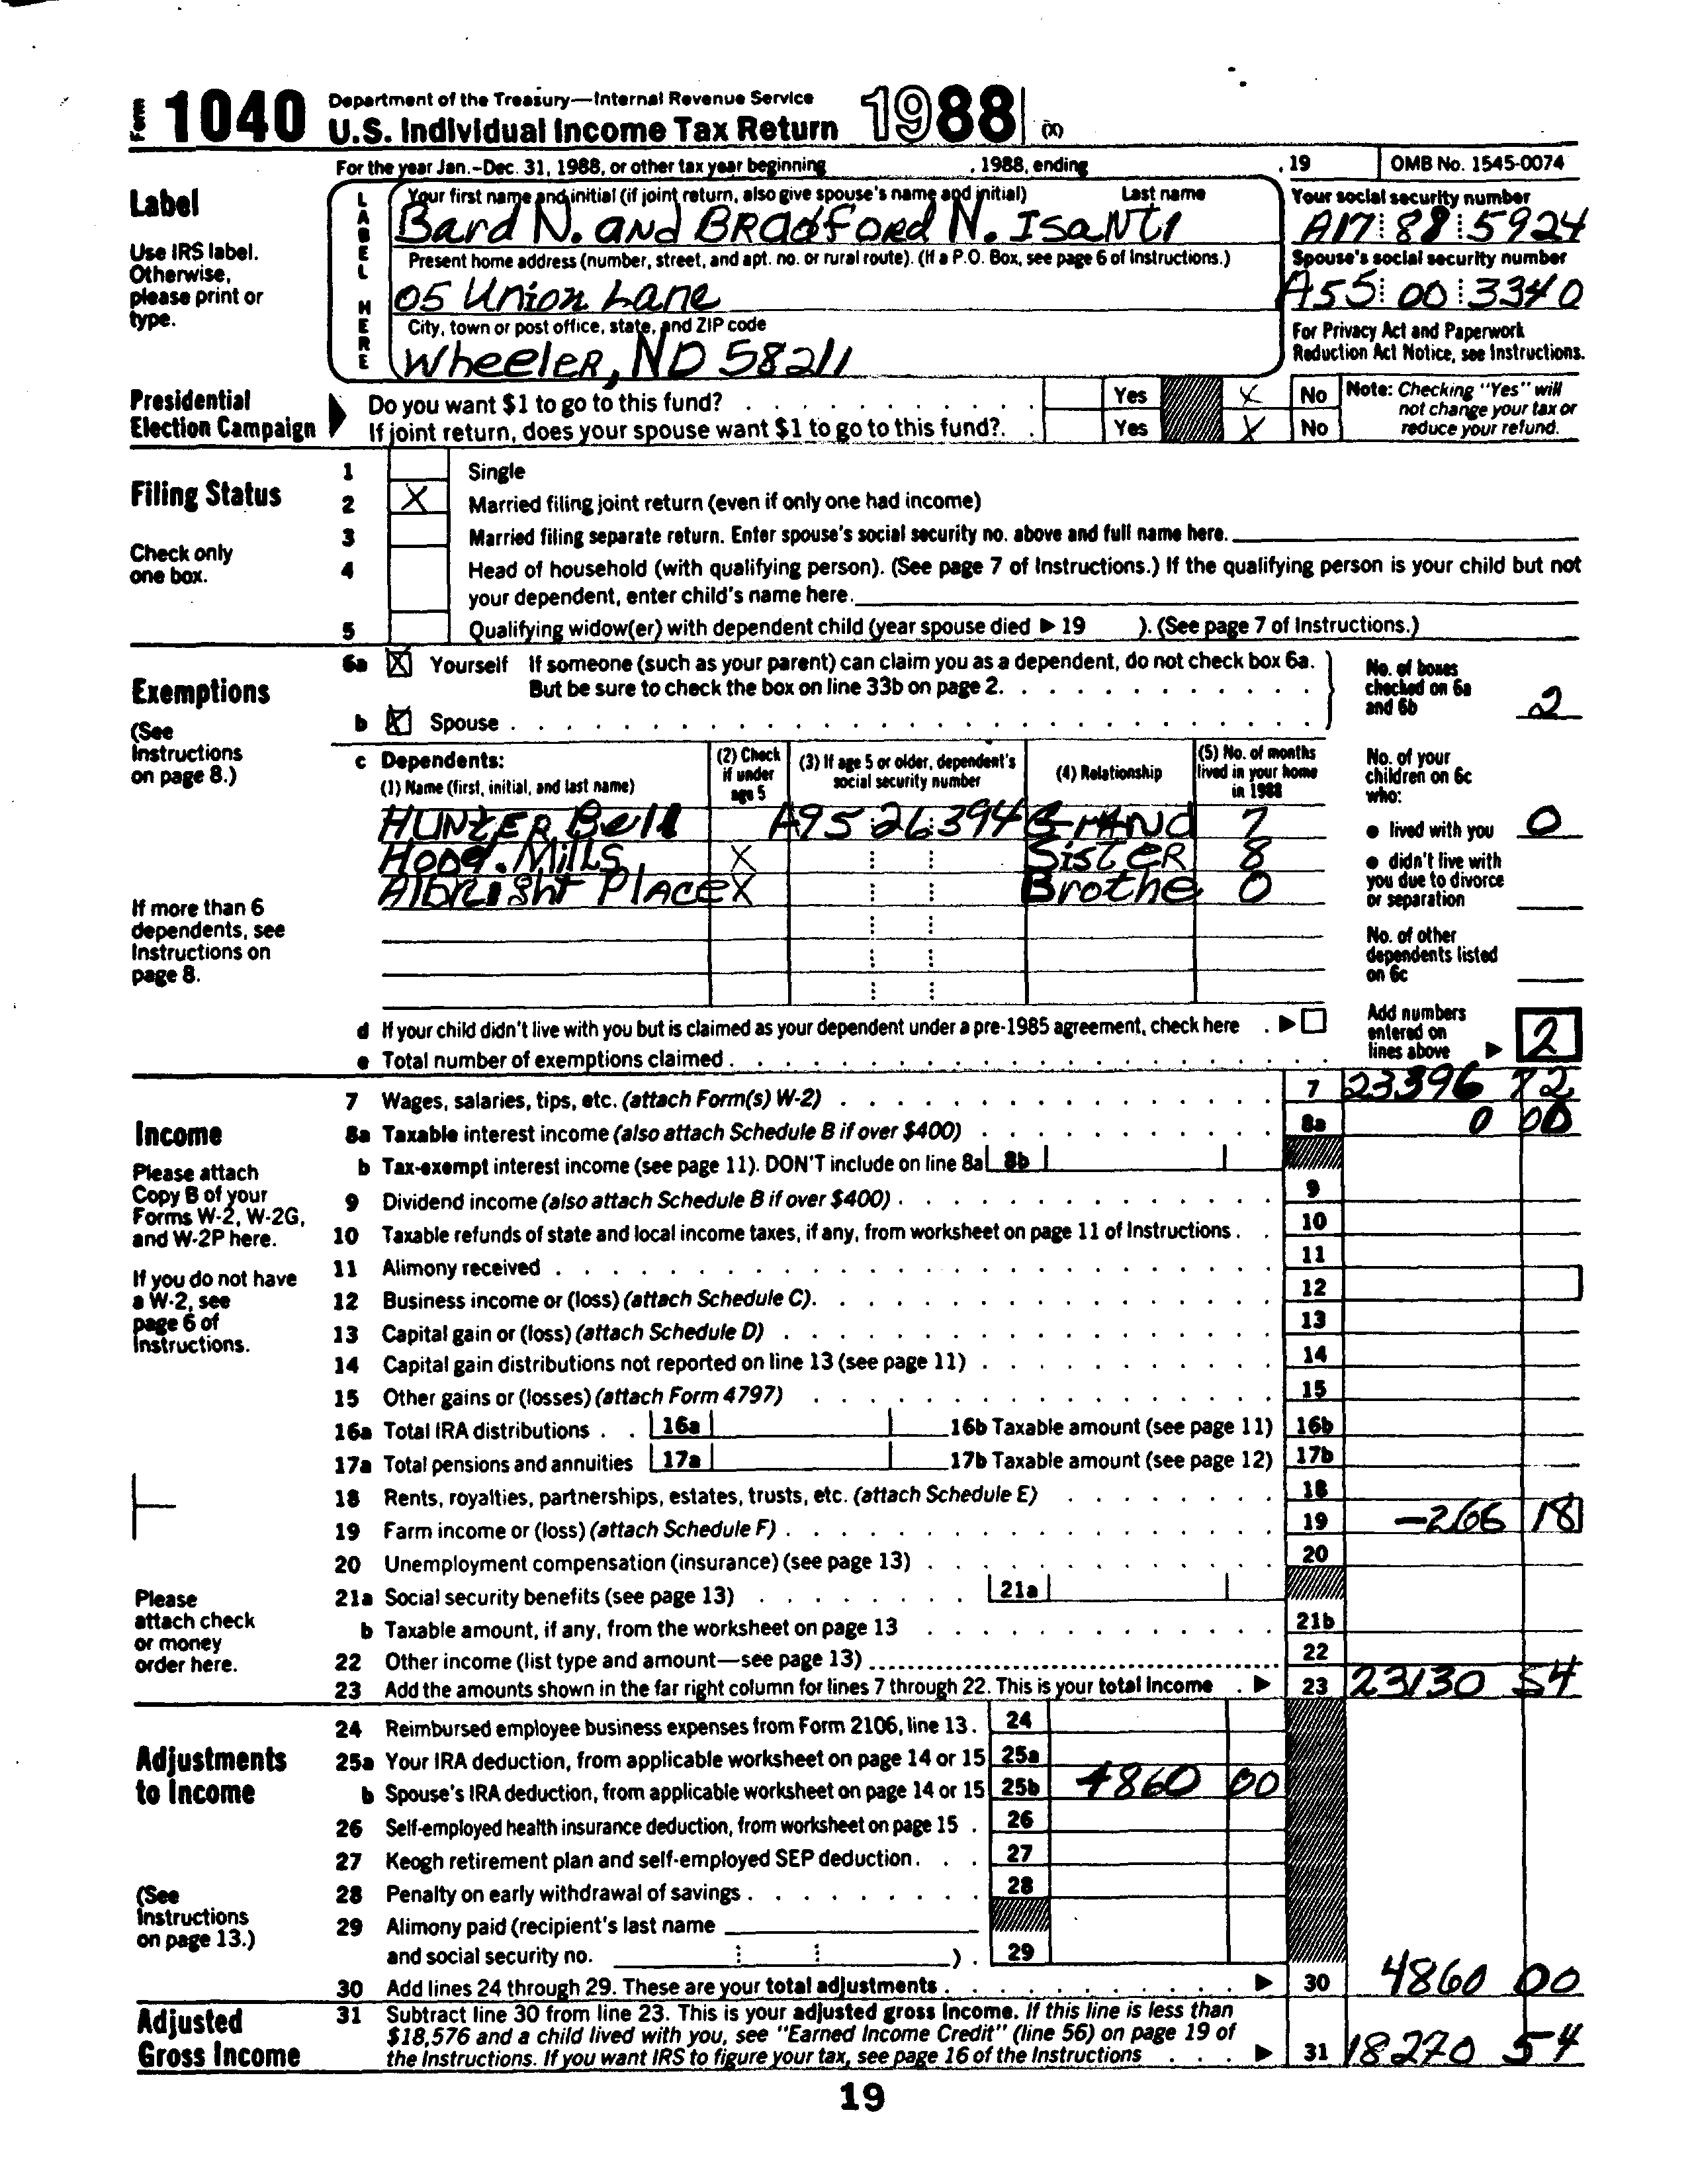 Form 1040 Department of the Treasury—Internal Revenue Service
U.S. Individual Income Tax Return 1988 (X)
For the year Jan.–Dec. 31, 1988, or other tax year beginning , 1988, ending , 19 OMB No. 1545-0074
Label
Use IRS label. Otherwise, please print or type.
LABEL HERE
Your first name and initial (if joint return, also give spouse's name and initial) Last name
Bard N. AND BRADFORD N. ISANTI
Your social security number
A17 88 5924
Present home address (number, street, and apt. no. or rural route). (If a P.O. Box, see page 6 of Instructions.)
05 Union Lane
Spouse's social security number
A55 00 3340
City, town or post office, state, and ZIP code
Wheeler, ND 58211
For Privacy Act and Paperwork Reduction Act Notice, see Instructions.
Presidential Election Campaign
Do you want $1 to go to this fund? Yes X No
If joint return, does your spouse want $1 to go to this fund?. Yes X No
Note: Checking "Yes" will not change your tax or reduce your refund.
Filing Status
Check only one box.
1 Single
2 X Married filing joint return (even if only one had income)
3 Married filing separate return. Enter spouse's social security no. above and full name here.
4 Head of household (with qualifying person). (See page 7 of Instructions.) If the qualifying person is your child but not
your dependent, enter child's name here.
5 Qualifying widow(er) with dependent child (year spouse died ▶ 19 ). (See page 7 of Instructions.)
Exemptions
(See Instructions on page 8.)
6a X Yourself If someone (such as your parent) can claim you as a dependent, do not check box 6a.
But be sure to check the box on line 33b on page 2.
b X Spouse
No. of boxes checked on 6a and 6b 2
c Dependents:
(1) Name (first, initial, and last name) (2) Check if under age 5 (3) If age 5 or older, dependent's social security number (4) Relationship (5) No. of months lived in your home in 1988
HUNTER Bell A95 26 394 GRAND 7
Hood. Mills X SISTER 8
Albright Place X Brothe 0
If more than 6 dependents, see Instructions on page 8.
No. of your children on 6c who:
● lived with you 0
● didn't live with you due to divorce or separation
No. of other dependents listed on 6c
d If your child didn't live with you but is claimed as your dependent under a pre-1985 agreement, check here ▶
e Total number of exemptions claimed
Add numbers entered on lines above ▶ 2
Income
Please attach Copy B of your Forms W-2, W-2G, and W-2P here.
If you do not have a W-2, see page 6 of Instructions.
Please attach check or money order here.
7 Wages, salaries, tips, etc. (attach Form(s) W-2) 7 23396 72
8a Taxable interest income (also attach Schedule B if over $400) 8a 0 00
b Tax-exempt interest income (see page 11). DON'T include on line 8a 8b
9 Dividend income (also attach Schedule B if over $400) 9
10 Taxable refunds of state and local income taxes, if any, from worksheet on page 11 of Instructions 10
11 Alimony received 11
12 Business income or (loss) (attach Schedule C). 12
13 Capital gain or (loss) (attach Schedule D) 13
14 Capital gain distributions not reported on line 13 (see page 11) 14
15 Other gains or (losses) (attach Form 4797) 15
16a Total IRA distributions 16a 16b Taxable amount (see page 11) 16b
17a Total pensions and annuities 17a 17b Taxable amount (see page 12) 17b
18 Rents, royalties, partnerships, estates, trusts, etc. (attach Schedule E) 18
19 Farm income or (loss) (attach Schedule F) 19 -266 18
20 Unemployment compensation (insurance) (see page 13) 20
21a Social security benefits (see page 13) 21a
b Taxable amount, if any, from the worksheet on page 13 21b
22 Other income (list type and amount—see page 13) 22
23 Add the amounts shown in the far right column for lines 7 through 22. This is your total income ▶ 23 23130 54
Adjustments to Income
(See Instructions on page 13.)
24 Reimbursed employee business expenses from Form 2106, line 13. 24
25a Your IRA deduction, from applicable worksheet on page 14 or 15 25a
b Spouse's IRA deduction, from applicable worksheet on page 14 or 15 25b 4860 00
26 Self-employed health insurance deduction, from worksheet on page 15 26
27 Keogh retirement plan and self-employed SEP deduction. 27
28 Penalty on early withdrawal of savings 28
29 Alimony paid (recipient's last name
and social security no. ) 29
30 Add lines 24 through 29. These are your total adjustments ▶ 30 4860 00
Adjusted Gross Income
31 Subtract line 30 from line 23. This is your adjusted gross income. If this line is less than
$18,576 and a child lived with you, see "Earned Income Credit" (line 56) on page 19 of
the Instructions. If you want IRS to figure your tax, see page 16 of the Instructions ▶ 31 18270 54
19